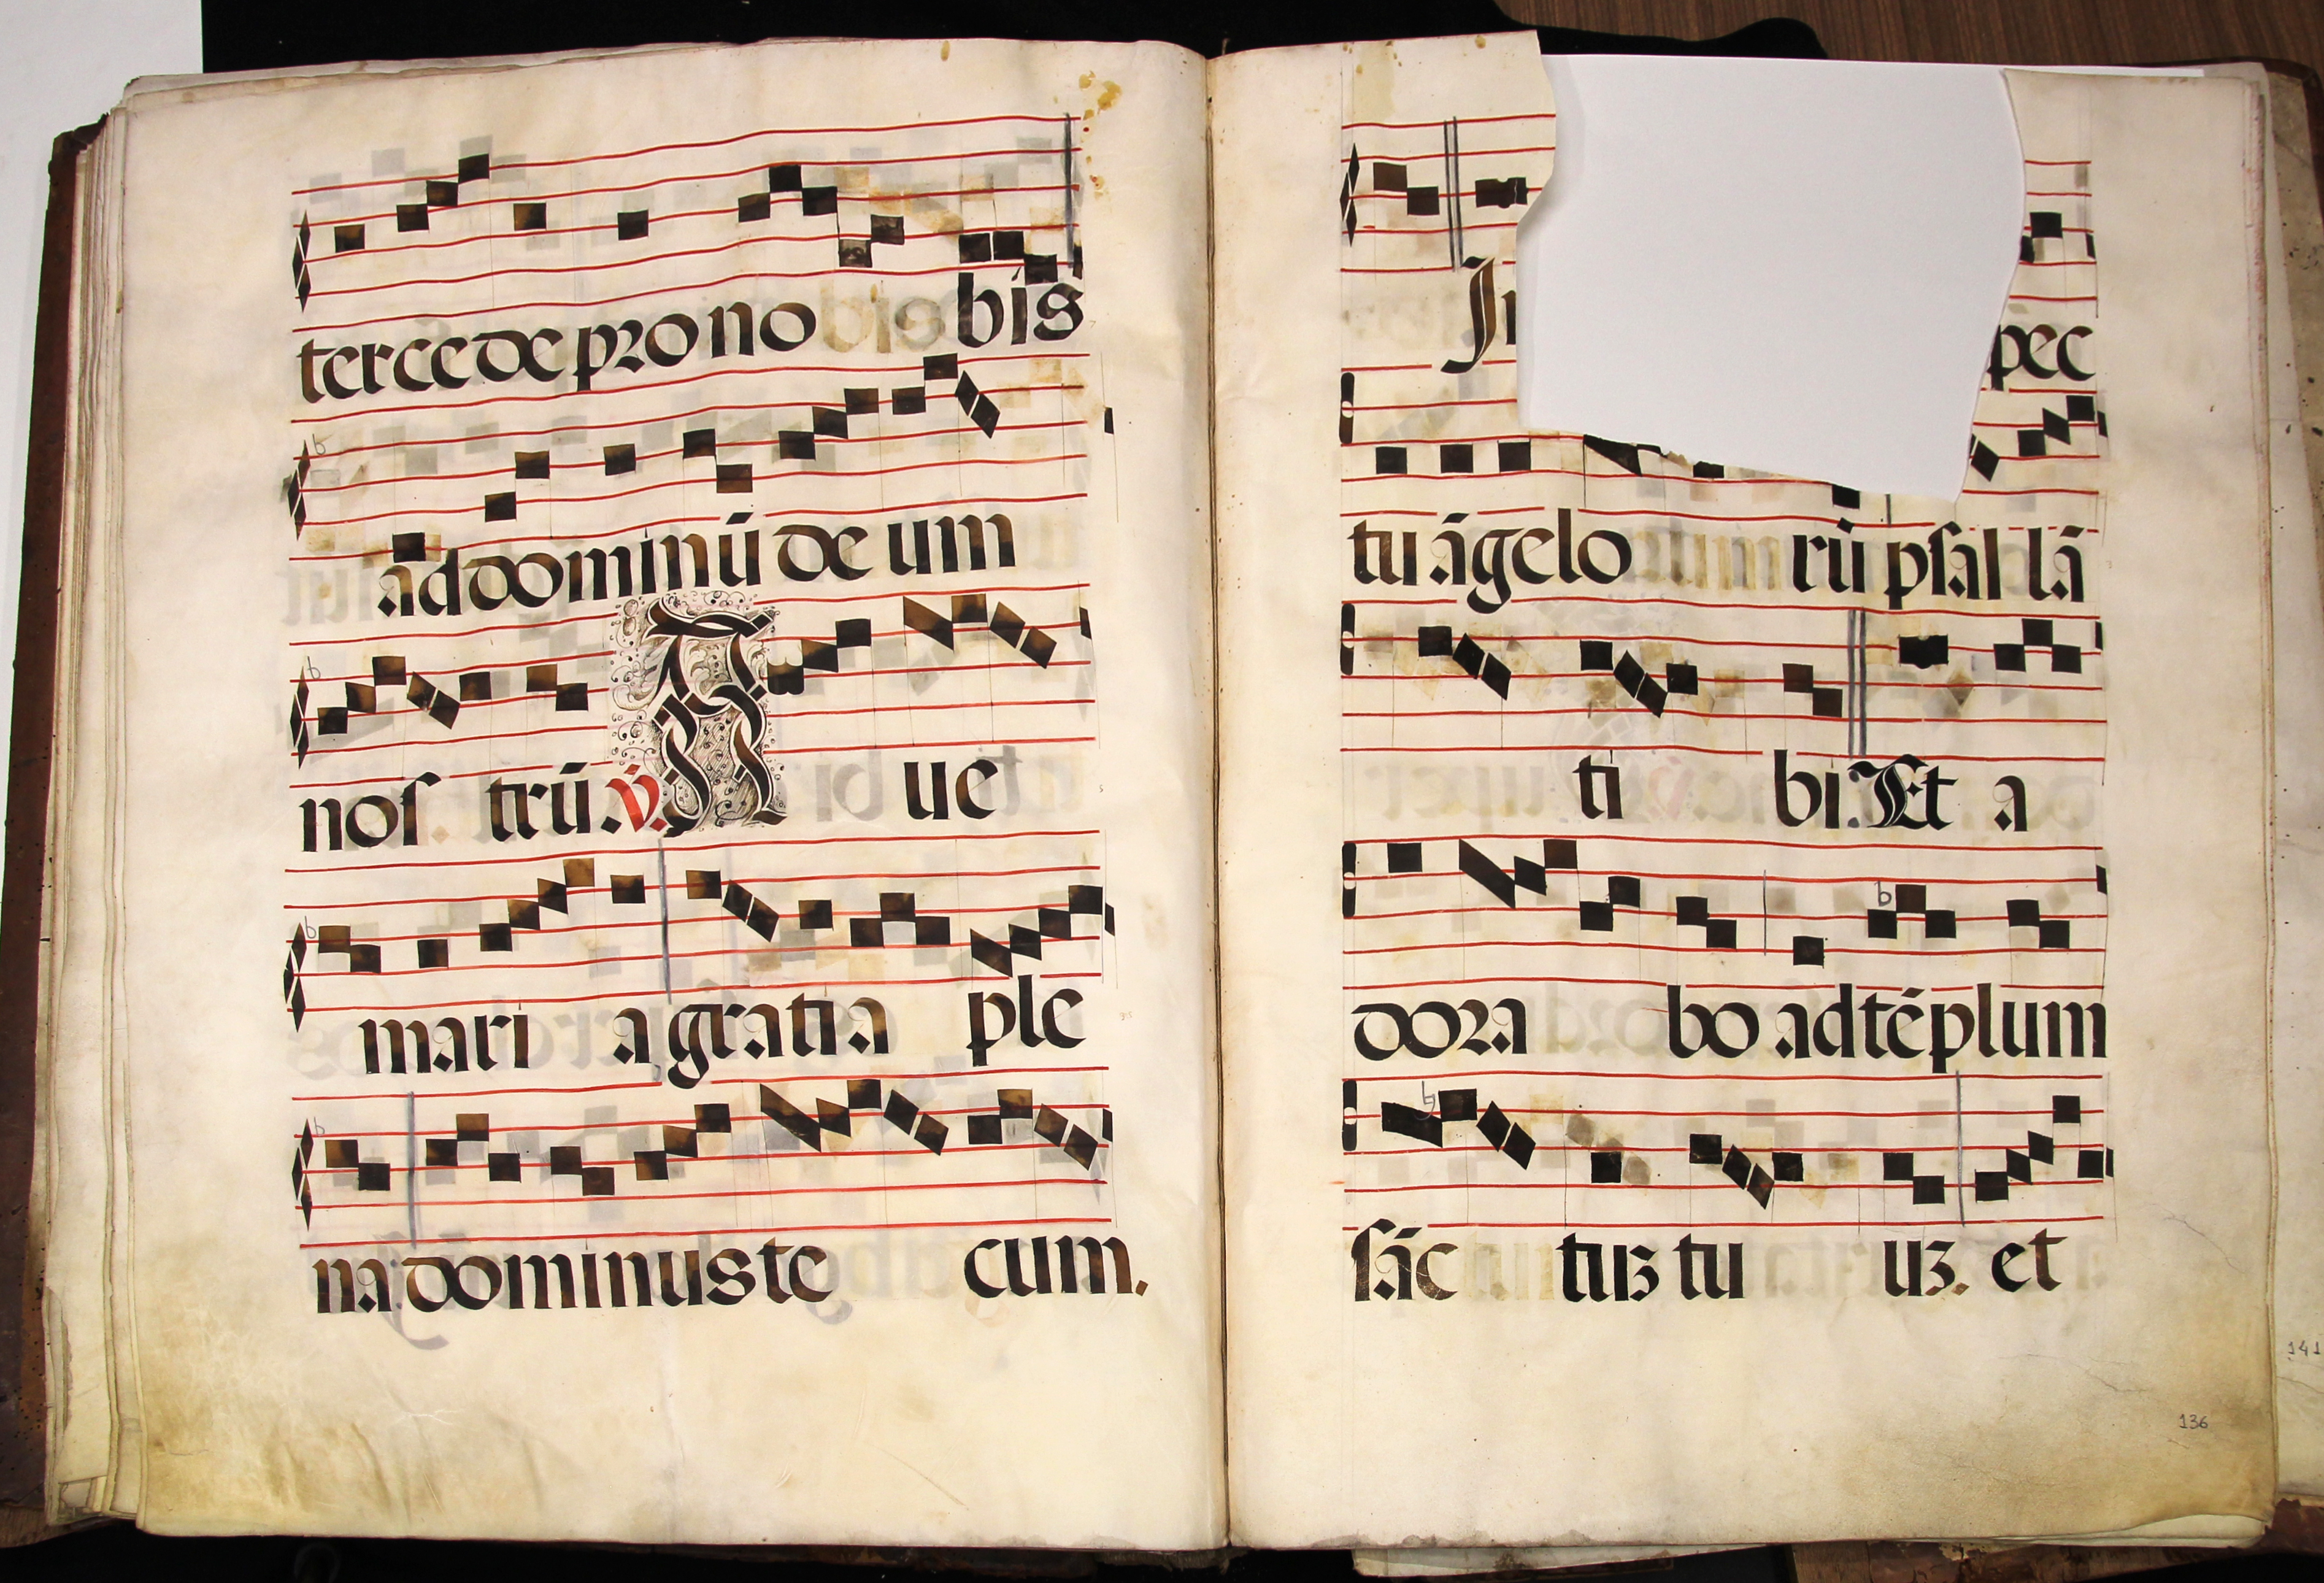 tercede pro no bis
ad dominū de um
nos trū. ℣. A ue
mari a gratia ple
na dominus te cum.
In
pec
tu āgelo rū psal lā
ti bi. Et a
dora bo ad tēplum
sāc tuʒ tu uʒ. et
136
141